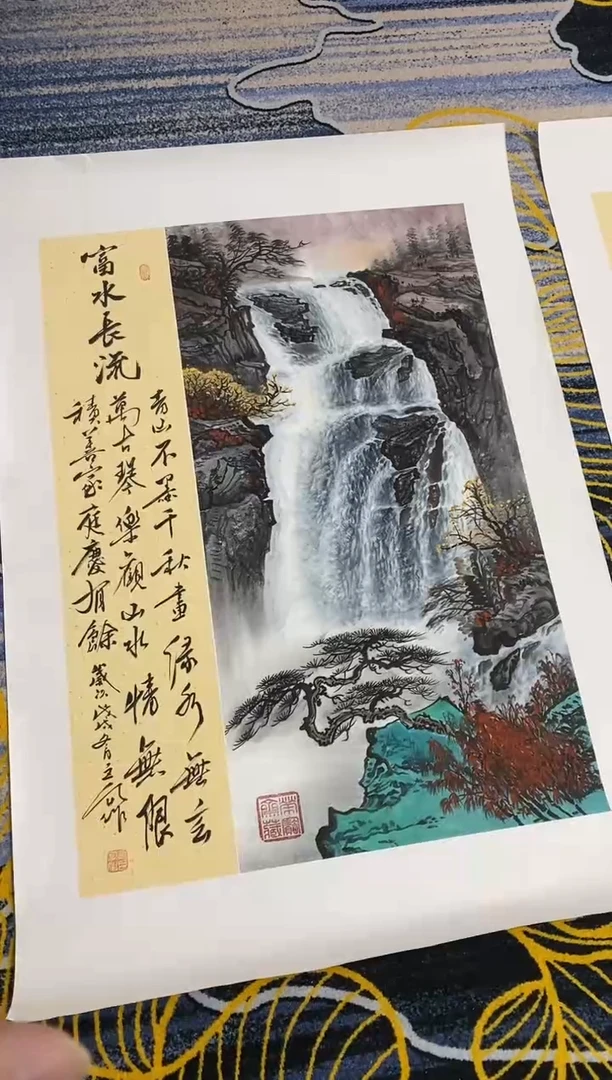 富水長流
青山不墨千秋畫緑水無
萬古琴樂觀山水情無限
積善家庭慶有餘歲次戊戌